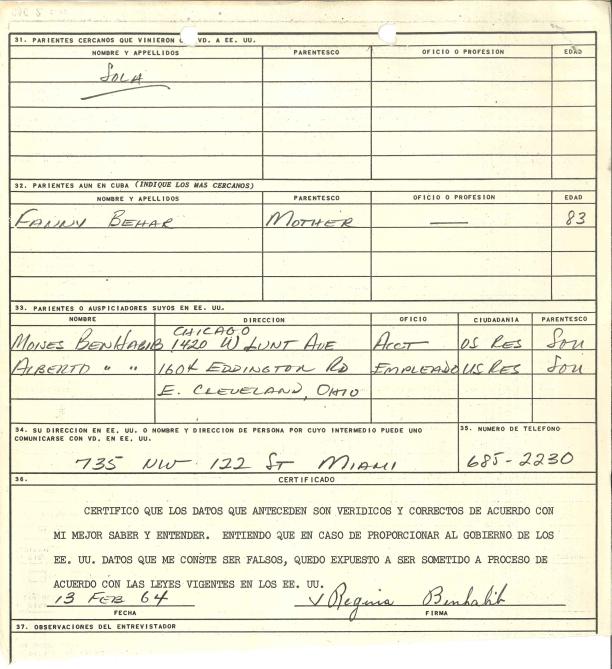 31. PARIENTES CERCANOS QUE VINIERON VD. A EE. UU.
NOMBRE Y APELLIDOS PARENTESCO OFICIO O PROFESION EDAD
SOLA
32. PARIENTES AUN EN CUBA (INDIQUE LOS MAS CERCANOS)
NOMBRE Y APELLIDOS PARENTESCO OFICIO O PROFESION EDAD
FANNY BEHAR MOTHER — 83
33. PARIENTES O AUSPICIADORES SUYOS EN EE. UU.
NOMBRE DIRECCION OFICIO CIUDADANIA PARENTESCO
CHICAGO
MOISES BENHABIB 1420 W LUNT AVE ACCT US RES SON
ALBERTO " " 1604 EDDINGTON RD EMPLEADO US RES SON
E. CLEVELAND, OHIO
34. SU DIRECCION EN EE. UU. O NOMBRE Y DIRECCION DE PERSONA POR CUYO INTERMEDIO PUEDE UNO
COMUNICARSE CON VD. EN EE. UU.
35. NUMERO DE TELEFONO
735 NW 122 ST MIAMI 685-2230
36. CERTIFICADO
CERTIFICO QUE LOS DATOS QUE ANTECEDEN SON VERIDICOS Y CORRECTOS DE ACUERDO CON
MI MEJOR SABER Y ENTENDER. ENTIENDO QUE EN CASO DE PROPORCIONAR AL GOBIERNO DE LOS
EE. UU. DATOS QUE ME CONSTE SER FALSOS, QUEDO EXPUESTO A SER SOMETIDO A PROCESO DE
ACUERDO CON LAS LEYES VIGENTES EN LOS EE. UU.
13 FEB 64 Regina Benhabib
FECHA FIRMA
37. OBSERVACIONES DEL ENTREVISTADOR